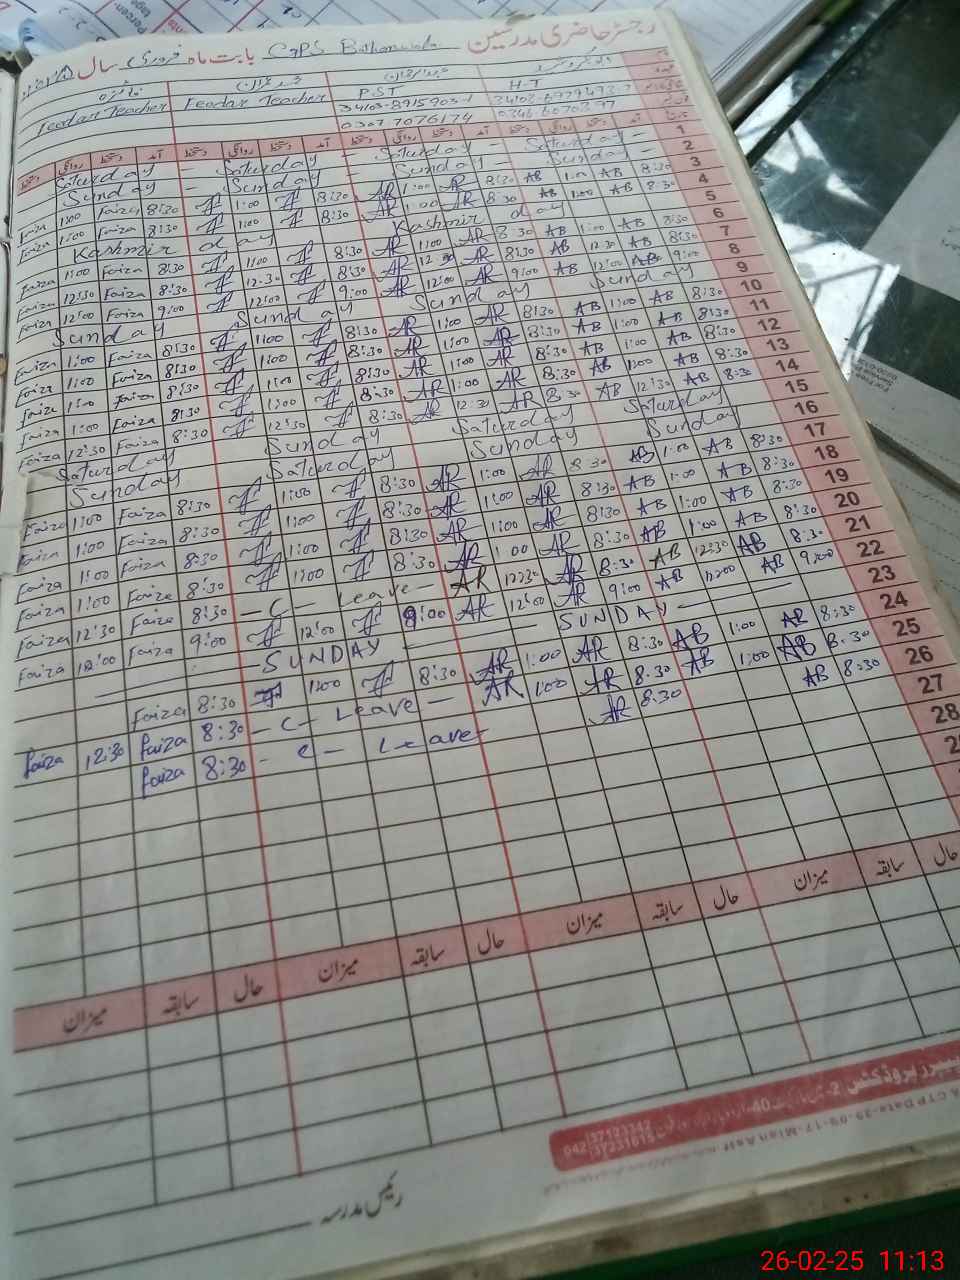 رجسٹر حاضری مدرسین GPS بابت ماہ فروری سال
Feodar Teacher Feodar Teacher PST H-T
0307 7076174
دستخط روانگی دستخط آمد دستخط روانگی دستخط آمد دستخط روانگی دستخط آمد
Saturday - Saturday - Saturday - Saturday - 1
Sunday - Sunday - Sunday - Sunday - 2
Faiza 1:00 Faiza 8:30 1:00 8:30 AR 1:00 AR 8:30 AB 1:00 AB 8:30 3
Faiza 1:00 Faiza 8:30 1:00 8:30 AR 1:00 AR 8:30 AB 1:00 AB 8:30 4
Kashmir day Kashmir day 5
Faiza 1:00 Faiza 8:30 1:00 8:30 AR 1:00 AR 8:30 AB 1:00 AB 8:30 6
Faiza 12:30 Faiza 8:30 12:30 8:30 AR 12:30 AR 8:30 AB 12:30 AB 8:30 7
Faiza 12:00 Faiza 9:00 12:00 9:00 AR 12:00 AR 9:00 AB 12:00 AB 9:00 8
Sunday Sunday Sunday Sunday 9
Faiza 1:00 Faiza 8:30 1:00 8:30 AR 1:00 AR 8:30 AB 1:00 AB 8:30 10
Faiza 1:00 Faiza 8:30 1:00 8:30 AR 1:00 AR 8:30 AB 1:00 AB 8:30 11
Faiza 1:00 Faiza 8:30 1:00 8:30 AR 1:00 AR 8:30 AB 1:00 AB 8:30 12
Faiza 1:00 Faiza 8:30 1:00 8:30 AR 1:00 AR 8:30 AB 1:00 AB 8:30 13
Faiza 12:30 Faiza 8:30 12:30 8:30 AR 12:30 AR 8:30 AB 12:30 AB 8:30 14
Saturday Sunday Saturday Saturday 15
Sunday Saturday Sunday Sunday 16
Faiza 1:00 Faiza 8:30 1:00 8:30 AR 1:00 AR 8:30 AB 1:00 AB 8:30 17
Faiza 1:00 Faiza 8:30 1:00 8:30 AR 1:00 AR 8:30 AB 1:00 AB 8:30 18
Faiza 1:00 Faiza 8:30 1:00 8:30 AR 1:00 AR 8:30 AB 1:00 AB 8:30 19
Faiza 1:00 Faiza 8:30 1:00 8:30 AR 1:00 AR 8:30 AB 1:00 AB 8:30 20
Faiza 12:30 Faiza 8:30 - C - Leave - AR 12:30 AR 8:30 AB 12:30 AB 8:30 21
Faiza 12:00 Faiza 9:00 12:00 9:00 AR 12:00 AR 9:00 AB 12:00 AB 9:00 22
SUNDAY SUNDAY 23
Faiza 8:30 1:00 8:30 AR 1:00 AR 8:30 AB 1:00 AB 8:30 24
Faiza 12:30 Faiza 8:30 - C - Leave - AR 1:00 AR 8:30 AB 1:00 AB 8:30 25
Faiza 8:30 - C - Leave AR 8:30 AB 8:30 26
27
28
میزان سابقہ حال میزان سابقہ حال میزان سابقہ حال میزان سابقہ حال
رئیس مدرسہ
26-02-25 11:13